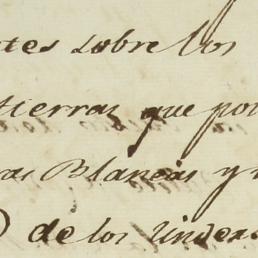 tes sobre los
tierras que por
as Blancas y
de los